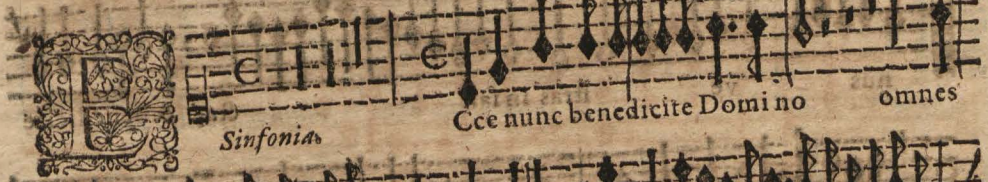 E
Sinfonia. Cce nunc benedicite Domino omnes